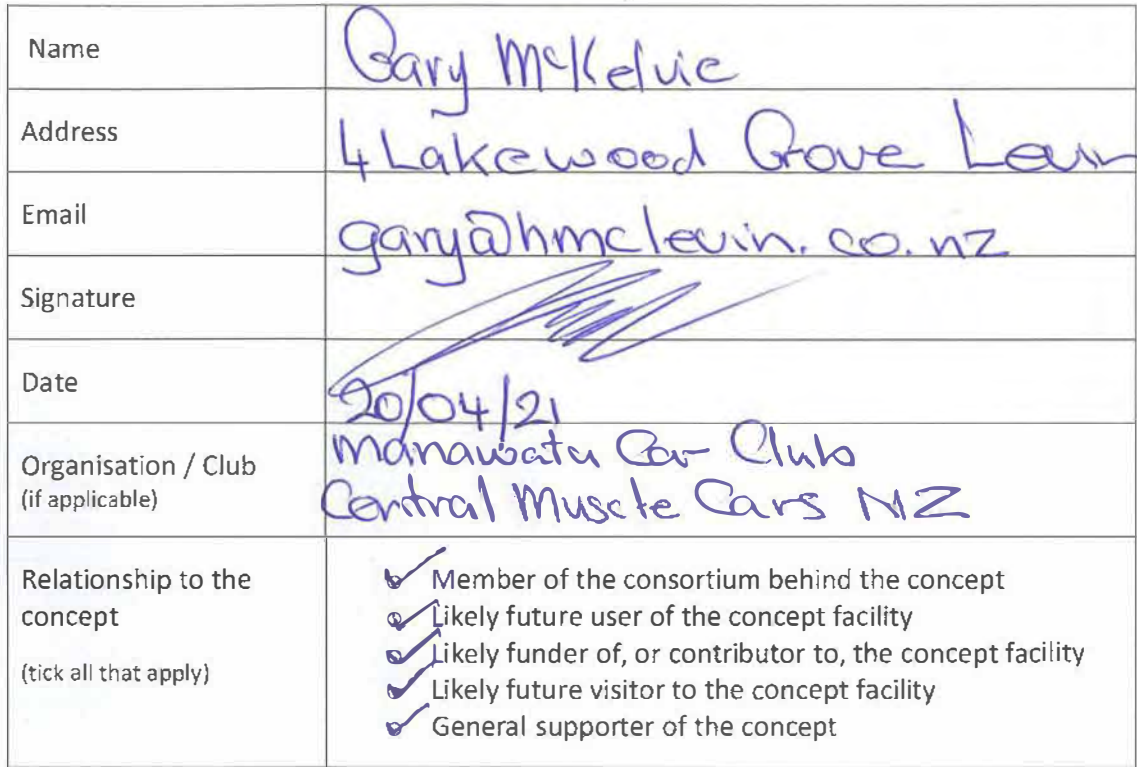 Name Gary McKelvie
Address 4 Lakewood Grove Levin
Email gary@hmclevin.co.nz
Signature
Date 20/04/21
Organisation / Club Manawatu Car Club
(if applicable) Central Muscle Cars NZ
Relationship to the Member of the consortium behind the concept
concept Likely future user of the concept facility
Likely funder of, or contributor to, the concept facility
(tick all that apply) Likely future visitor to the concept facility
General supporter of the concept